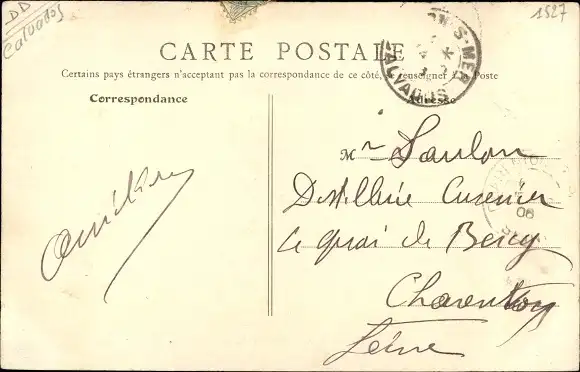 DD
Calvados
1527
CARTE POSTALE
Certains pays étrangers n'acceptent pas la correspondance de ce côté, se renseigner à la Poste
Correspondance
Adresse
N-S-MER
CALVADOS
Mr Saulon
Distillerie Cusenier
Quai de Bercy
Charenton
Seine
06